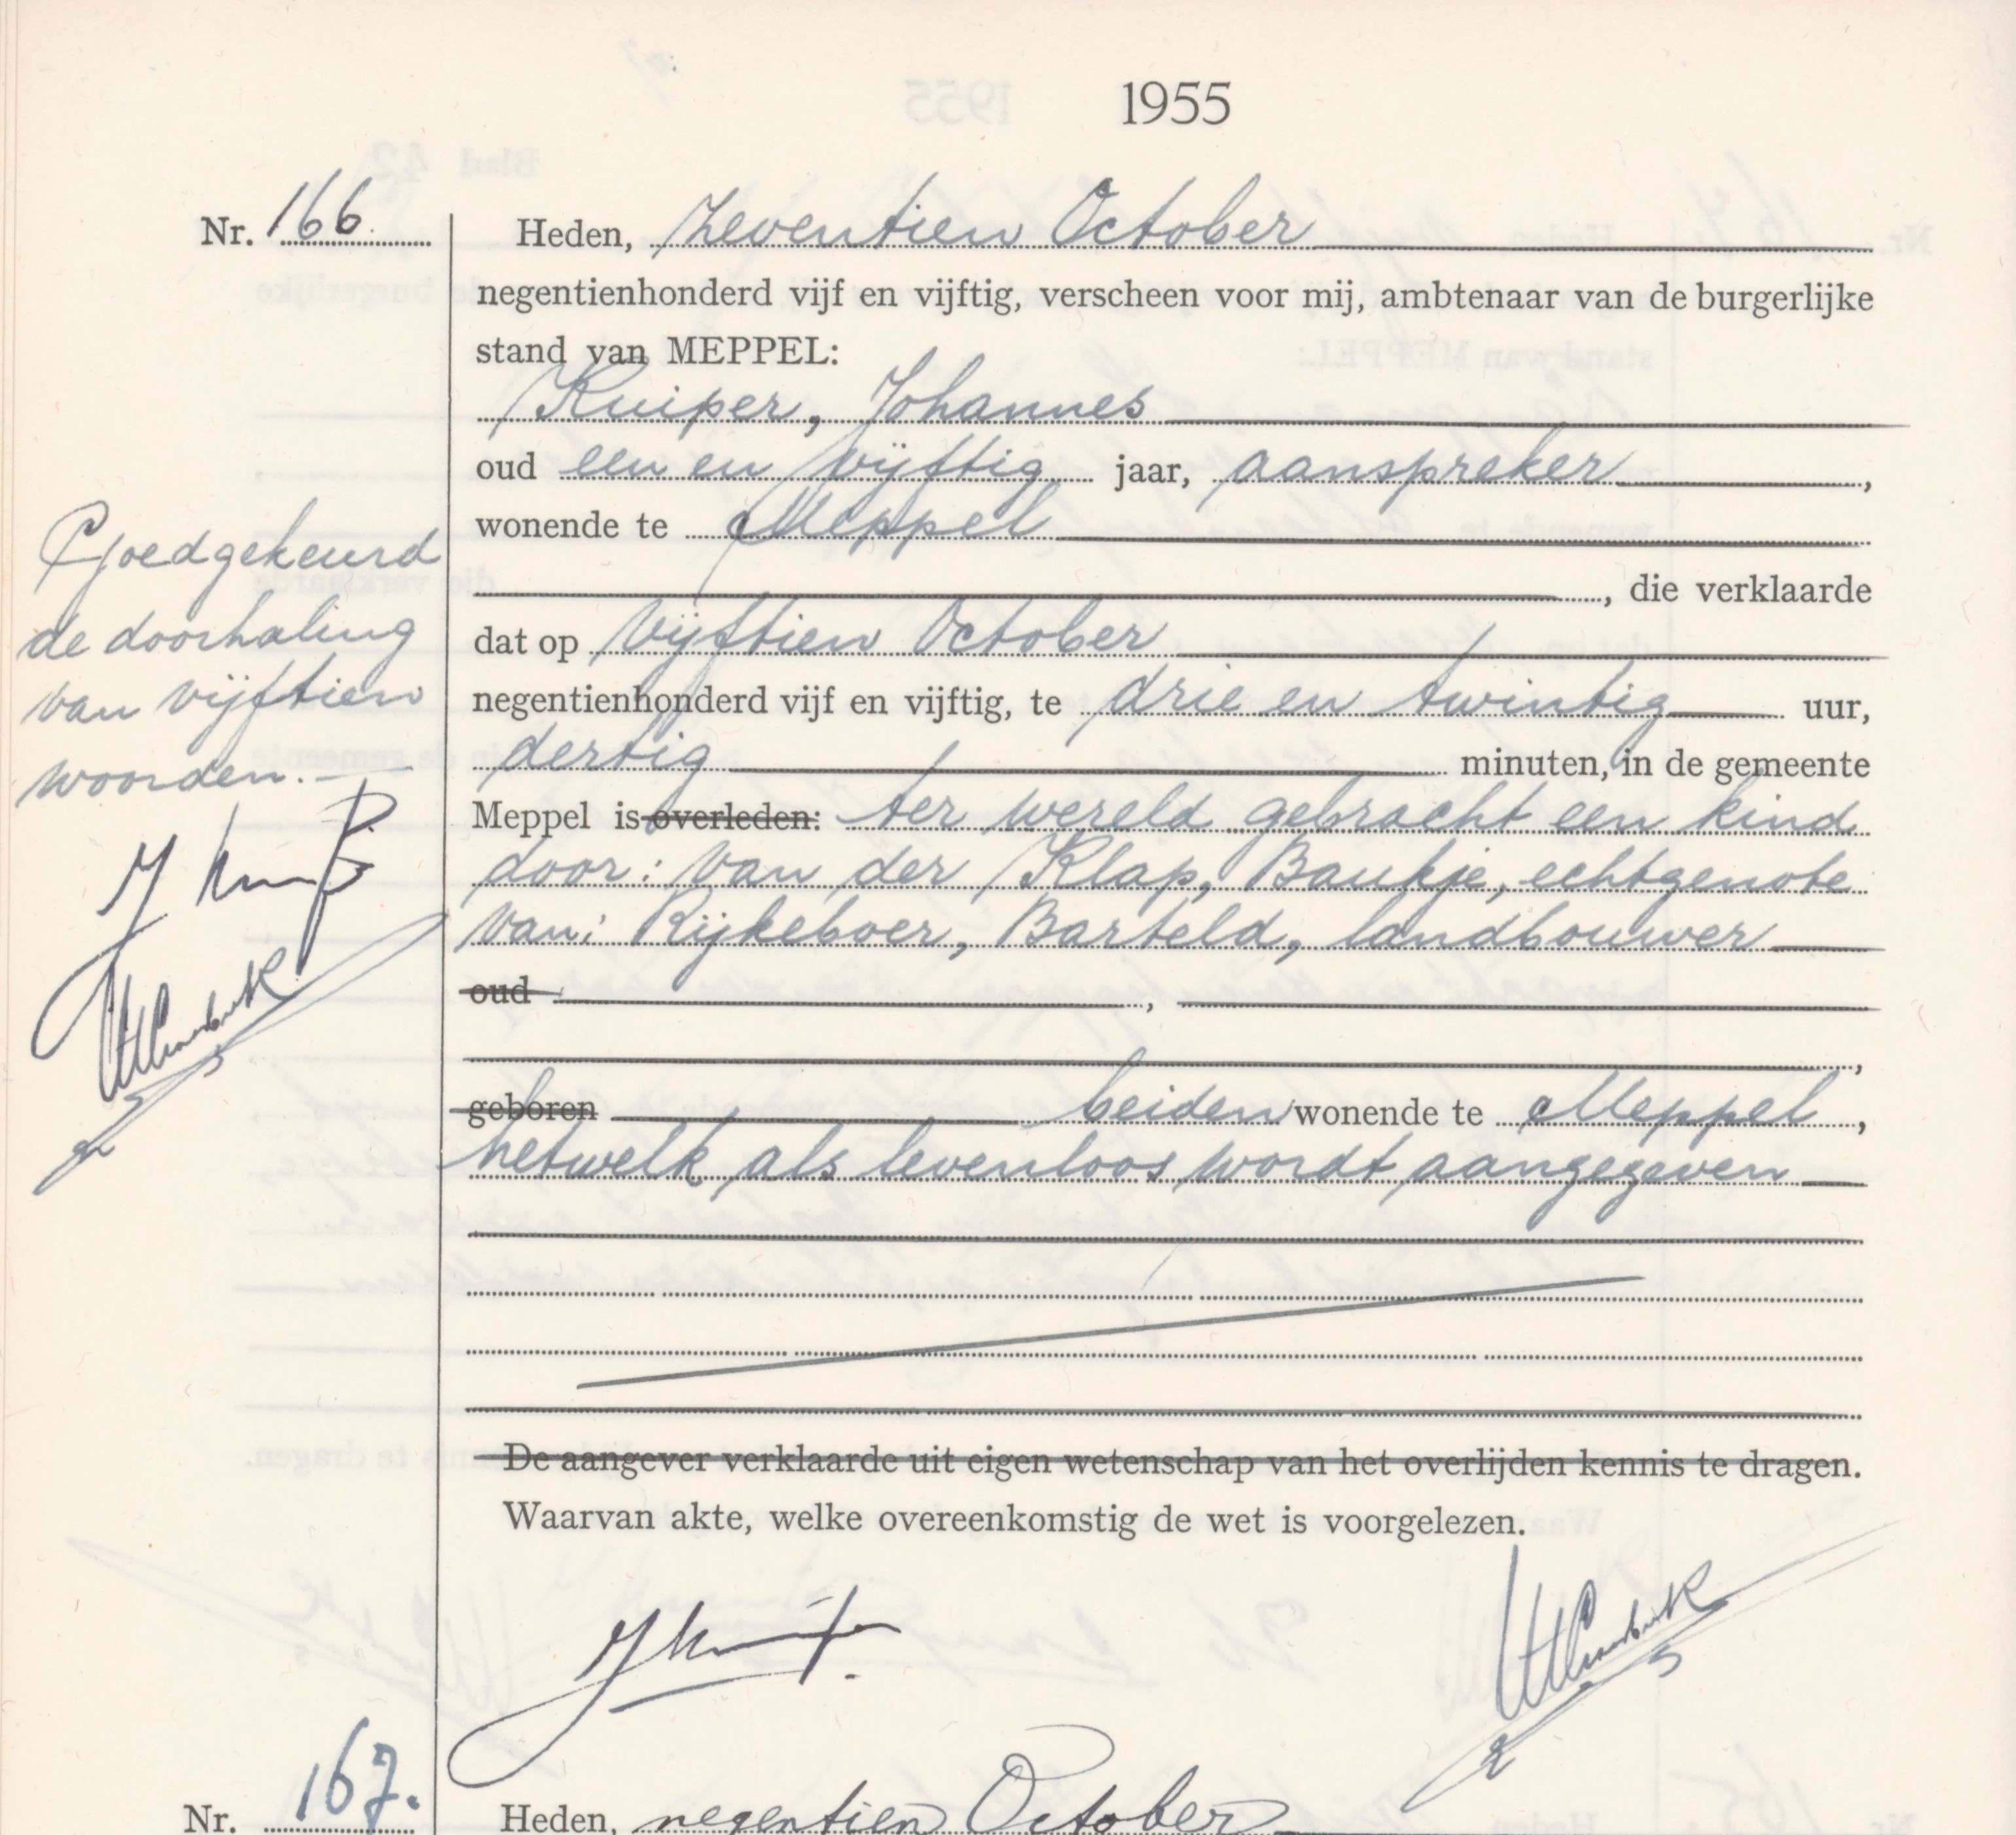 1955
Nr. 166
Heden, Zeventien October
negentienhonderd vijf en vijftig, verscheen voor mij, ambtenaar van de burgerlijke
stand van MEPPEL:
Kuiper, Johannes
oud een en vijftig jaar, aanspreker,
wonende te Meppel
, die verklaarde
dat op Vijftien October
negentienhonderd vijf en vijftig, te drie en twintig uur,
dertig minuten, in de gemeente
Meppel is overleden: ter wereld gebracht een kind
door: van der Klap, Baukje, echtgenote
van: Rijkeboer, Barteld, landbouwer
oud ,
,
geboren beiden wonende te Meppel,
hetwelk als levenloos wordt aangegeven
De aangever verklaarde uit eigen wetenschap van het overlijden kennis te dragen.
Waarvan akte, welke overeenkomstig de wet is voorgelezen.
Goedgekeurd
de doorhaling
van vijftien
woorden.
Nr. 167.
Heden, negentien October